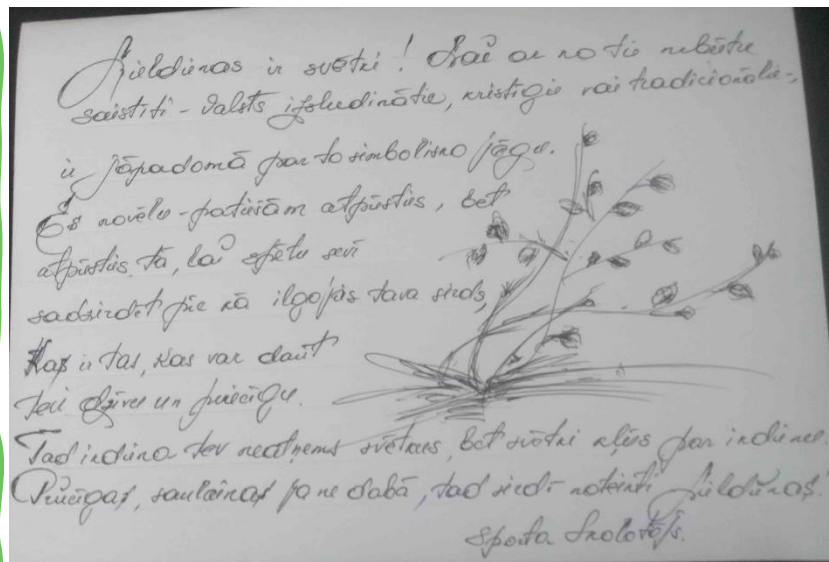 Lieldienas ir svētki! Lai ar ko tie nebūtu
saistīti - valsts izsludinātie, kristīgie vai tradicionālie-,
ir jāpadomā par to simbolisko jēgu.
Es novēlu - patiešām atpūsties, bet
atpūsties tā, lai spētu sevī
sadzirdēt pēc kā ilgojas tava sirds,
Kas ir tas, kas var darīt
tevi dzīvu un priecīgu.
Tad ikdiena tev neatņems svētkus, bet svētki kļūs par ikdienu.
Priecīgas, saulainas ja ne dabā, tad sirdī noteikti Lieldienas!
Sporta skolotājs.